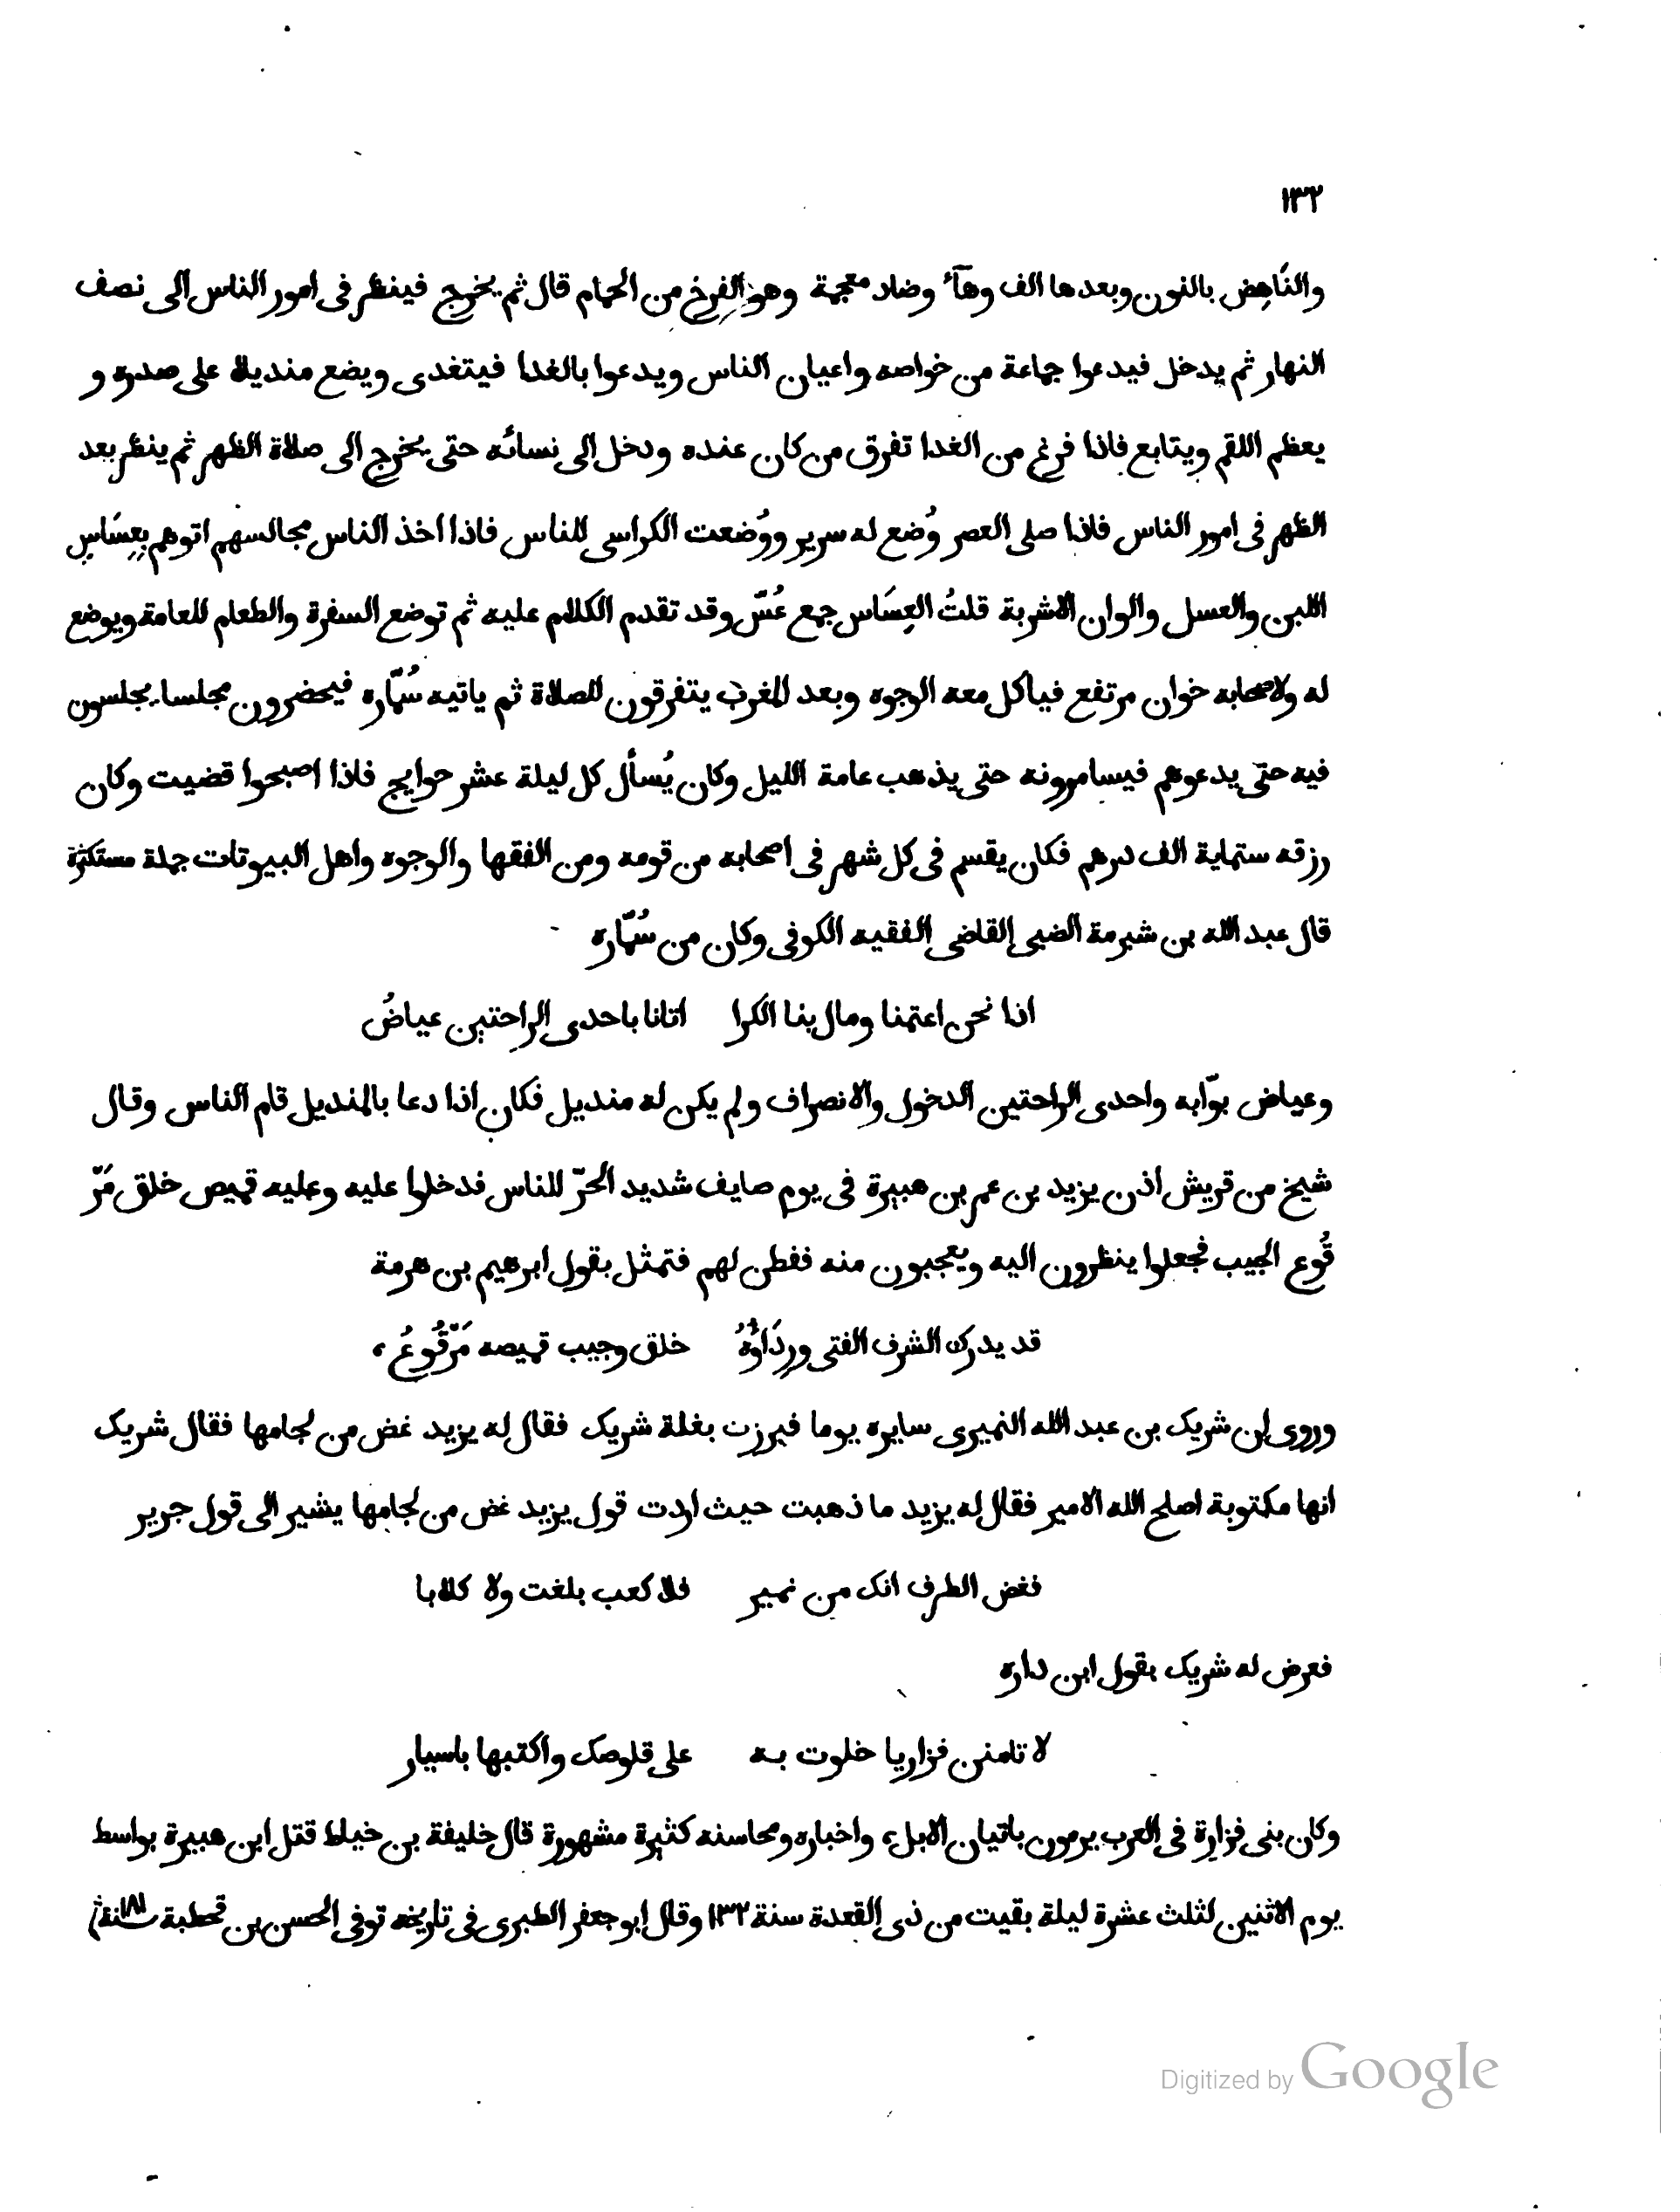 ١٣٢
والنَاهِض بالنون وبعدها الف وهآء وضاد معجمة وهو الفِرخ من الحمام قال ثم يخرج فينظر فى امور الناس الى نصف
النهار ثم يدخل فيدعوا جماعة من خواصه واعيان الناس ويدعوا بالغدا فيتغدى ويضع منديلا على صدره و
يعظم اللقم ويتابع فاذا فرغ من الغدا تفرق من كان عنده ودخل الى نسائه حتى يخرج الى صلاة الظهر ثم ينظر بعد
الظهر فى امور الناس فاذا صلى العصر وُضع له سرير ووُضعت الكراسى للناس فاذا اخذ الناس مجالسهم اتوهم بِعِسَاسِ
اللبن والعسل والوان الاشربة قلتُ العِسَاس جمع عُسّ وقد تقدم الكلام عليه ثم توضع السفرة والطعام للعامة ويوضع
له ولاصحابه خوان مرتفع فياكل معه الوجوه وبعد المغرب يتفرقون للصلاة ثم ياتيه سُمّاره فيحضرون مجلسا يجلسون
فيه حتى يدعوهم فيسامرونه حتى يذهب عامة الليل وكان يُسأل كل ليلة عشر حوايج فاذا اصبحوا قضيت وكان
رزقه ستماية الف درهم فكان يقسم فى كل شهر فى اصحابه من قومه ومن الفقها والوجوه واهل البيوتات جملة مستكثرة
قال عبد الله بن شبرمة الضبى القاضى الفقيه الكوفى وكان من سُمّاره
اذا نحن اعتمنا ومال بنا الكرا اتانا باحدى الراحتين عياضُ
وعياض بوّابه واحدى الراحتين الدخول والانصراف ولم يكن له منديل فكان اذا دعا بالمنديل قام الناس وقال
شيخ من قريش اذن يزيد بن عمر بن هبيرة فى يوم صايف شديد الحرّ للناس فدخلوا عليه وعليه قميص خلق مَرّ
قُوع الجيب فجعلوا ينظرون اليه ويعجبون منه ففطن لهم فتمثل بقول ابرهيم بن هرمة
قد يدرك الشرف الفتى ورِدَاؤُهُ خلق وجيب قميصه مَرّقُوعُ ،
وروى ان شريك بن عبد الله النميرى سايره يوما فبرزت بغلة شريك فقال له يزيد غض من لجامها فقال شريك
انها مكتوبة اصلح الله الامير فقال له يزيد ما ذهبت حيث اردت قول يزيد غض من لجامها يشير الى قول جرير
فغض الطرف انك من نمير فلا كعب بلغت ولا كلابا
فعرض له شريك بقول ابن داره
لا تامنن فزاريا خلوت به على قلوصك واكتبها باسيار
وكان بنى فزارة فى العرب يرمون باتيان الابل، واخباره ومحاسنه كثيرة مشهورة قال خليفة بن خياط قتل ابن هبيرة بواسط
يوم الاثنين لثلث عشرة ليلة بقيت من ذى القعدة سنة ١٣٢ وقال ابو جعفر الطبرى فى تاريخه توفى الحسن بن قحطبة سنة ١٨١
Digitized by Google